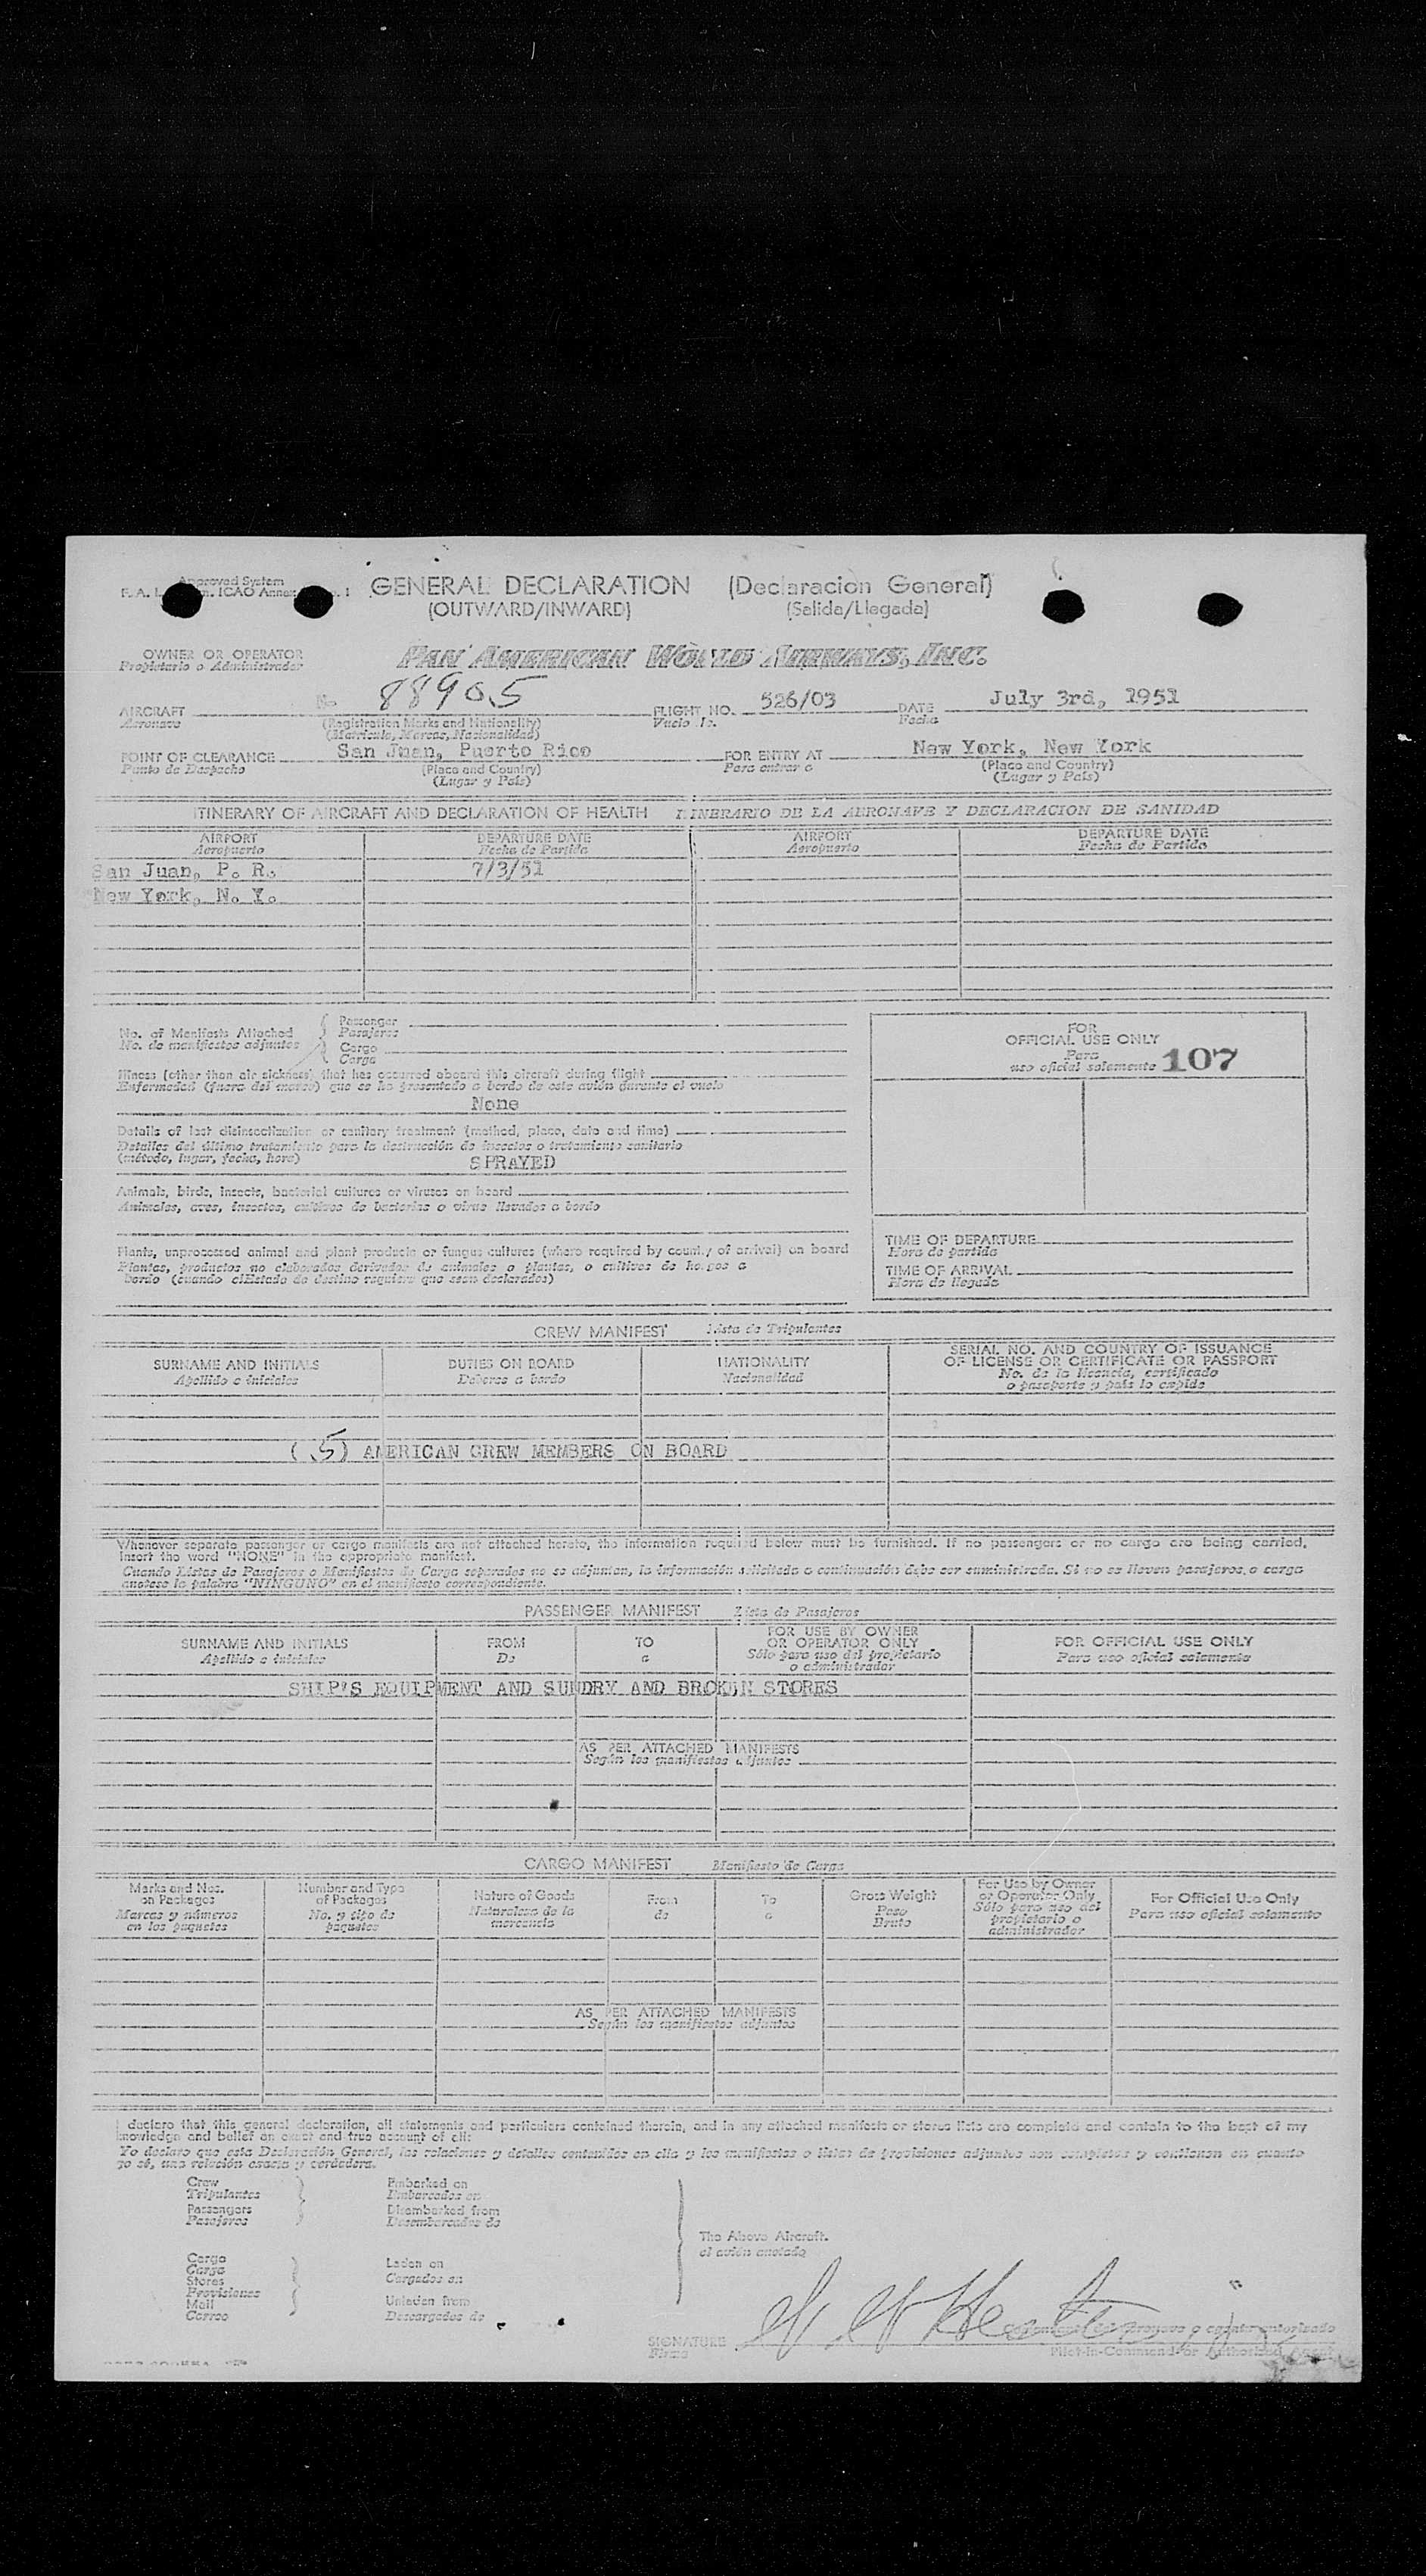 Approved System
F. A. L. ICAO Annex 1
GENERAL DECLARATION (Declaracion General)
(OUTWARD/INWARD) (Salida/Llegada)
OWNER OR OPERATOR
Propietario o Administrador
PAN AMERICAN WORLD AIRWAYS, INC.
AIRCRAFT No. 88905 FLIGHT NO. 526/03 DATE July 3rd, 1951
Aeronave (Registration Marks and Nationality) Vuelo No. Fecha
(Matricula, Marcas, Nacionalidad)
POINT OF CLEARANCE San Juan, Puerto Rico FOR ENTRY AT New York, New York
Punto de Despacho (Place and Country) Para entrar a (Place and Country)
(Lugar y País) (Lugar y País)
ITINERARY OF AIRCRAFT AND DECLARATION OF HEALTH ITINERARIO DE LA AERONAVE Y DECLARACION DE SANIDAD
AIRPORT DEPARTURE DATE AIRPORT DEPARTURE DATE
Aeropuerto Fecha de Partida Aeropuerto Fecha de Partida
San Juan, P. R. 7/3/51
New York, N. Y.
No. of Manifests Attached
No. de manifiestos adjuntos
Passenger
Pasajeros
Cargo
Carga
Illness (other than air sickness) that has occurred aboard this aircraft during flight
Enfermedad (fuera del mareo) que se ha presentado a bordo de este avión durante el vuelo
None
Details of last disinsectization or sanitary treatment (method, place, date and time)
Detalles del último tratamiento para la destrucción de insectos o tratamiento sanitario
(método, lugar, fecha, hora)
SPRAYED
Animals, birds, insects, bacterial cultures or viruses on board
Animales, aves, insectos, cultivos de bacterias o virus llevados a bordo
Plants, unprocessed animal and plant products or fungus cultures (where required by country of arrival) on board
Plantas, productos no elaborados derivados de animales o plantas, o cultivos de hongos a
bordo (cuando el Estado de destino requiera que sean declarados)
FOR
OFFICIAL USE ONLY
Para
uso oficial solamente 107
TIME OF DEPARTURE
Hora de partida
TIME OF ARRIVAL
Hora de llegada
CREW MANIFEST Lista de Tripulantes
SURNAME AND INITIALS DUTIES ON BOARD NATIONALITY SERIAL NO. AND COUNTRY OF ISSUANCE
OF LICENSE OR CERTIFICATE OR PASSPORT
Apellido e iniciales Deberes a bordo Nacionalidad No. de la licencia, certificado
o pasaporte y país lo expide
(5) AMERICAN CREW MEMBERS ON BOARD
Whenever separate passenger or cargo manifests are not attached hereto, the information required below must be furnished. If no passengers or no cargo are being carried,
insert the word "NONE" in the appropriate manifest.
Cuando Listas de Pasajeros o Manifiestos de Carga separados no se adjuntan, la información solicitada a continuación debe ser suministrada. Si no se llevan pasajeros o carga
anotese la palabra "NINGUNO" en el manifiesto correspondiente.
PASSENGER MANIFEST Lista de Pasajeros
SURNAME AND INITIALS FROM TO FOR USE BY OWNER
OR OPERATOR ONLY FOR OFFICIAL USE ONLY
Apellido e iniciales De a Sólo para uso del propietario
o administrador Para uso oficial solamente
SHIP'S EQUIPMENT AND SUNDRY AND BROKEN STORES
AS PER ATTACHED MANIFESTS
Según los manifiestos adjuntos
CARGO MANIFEST Manifiesto de Carga
Marks and Nos.
on Packages
Marcas y números
en los paquetes
Number and Type
of Packages
No. y tipo de
paquetes
Nature of Goods
Naturaleza de la
mercancia
From
de
To
a
Gross Weight
Peso
Bruto
For Use by Owner
or Operator Only
Sólo para uso del
propietario o
administrador
For Official Use Only
Para uso oficial solamente
AS PER ATTACHED MANIFESTS
Según los manifiestos adjuntos
I declare that this general declaration, all statements and particulars contained therein, and in any attached manifests or stores lists are complete and contain to the best of my
knowledge and belief an exact and true account of all:
Yo declaro que esta Declaración General, las relaciones y detalles contenidos en ella y los manifiestos o listas de provisiones adjuntos son completos y contienen en cuanto
yo sé, una relación exacta y verdadera.
Crew
Tripulantes
Passengers
Pasajeros
Embarked on
Embarcados en
Disembarked from
Desembarcados de
Cargo
Carga
Stores
Provisiones
Mail
Correo
Laden on
Cargados en
Unladen from
Descargados de
The Above Aircraft.
el avión anotado
SIGNATURE
Firma
o agente autorizado
Pilot-in-Command or Authorized Agent